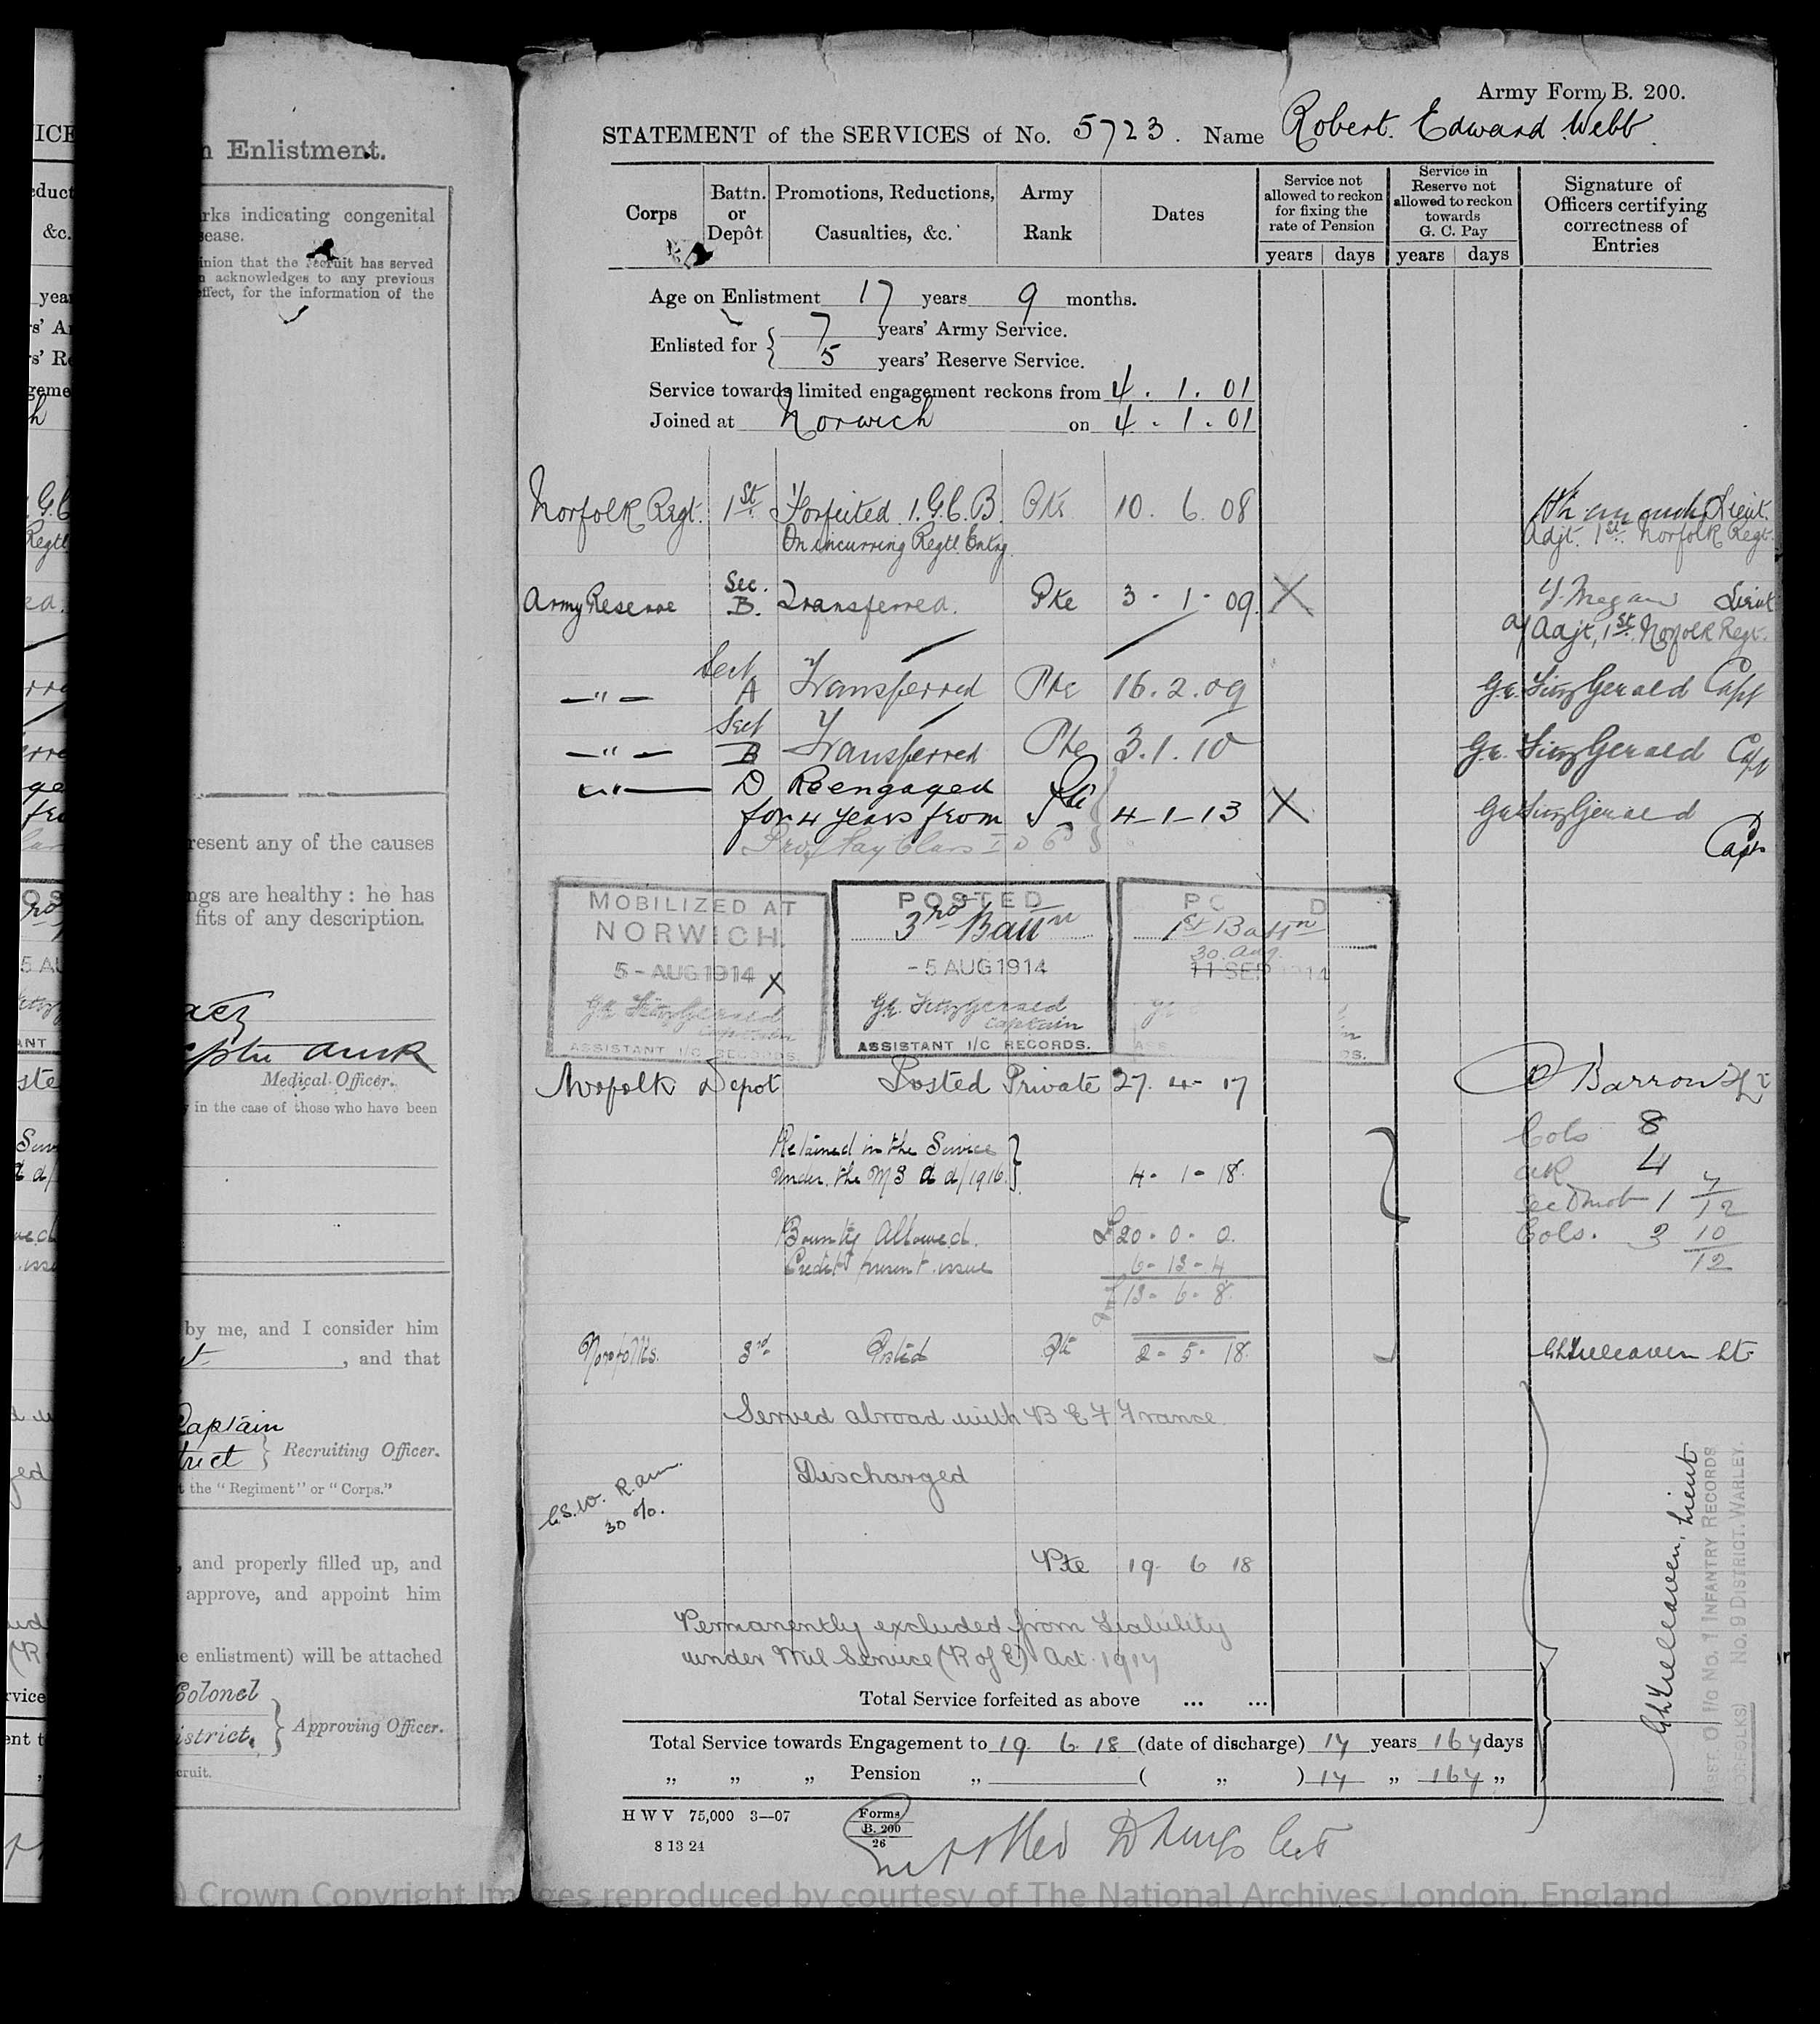 Army Form B. 200.
STATEMENT of the SERVICES of No. 5723. Name Robert Edward Webb
Corps
Battn. or Depôt
Promotions, Reductions, Casualties, &c.
Army Rank
Dates
Service not allowed to reckon for fixing the rate of Pension
years days
Service in Reserve not allowed to reckon towards G. C. Pay
years days
Signature of Officers certifying correctness of Entries
Age on Enlistment 17 years 9 months.
Enlisted for { 7 years' Army Service.
5 years' Reserve Service.
Service towards limited engagement reckons from 4. 1. 01
Joined at Norwich on 4. 1. 01
Norfolk Regt. 1st Forfeited 1. G.C.B. Pte 10. 6. 08 Lieut.
On incurring Regtl. Entry. Adjt. 1st Norfolk Regt.
Army Reserve Sec. B. Transferred. Pte 3-1-09 X Lieut
a/Adjt, 1st Norfolk Regt.
—"— Sect A Transferred Pte 16.2.09 FitzGerald Capt
—"— Sect B Transferred Pte 3.1.10 FitzGerald Capt
—"— D Reengaged
for 4 years from Pte 4-1-13 X FitzGerald Capt
MOBILIZED AT
NORWICH.
5-AUG 1914 X
FitzGerald
Captain
ASSISTANT I/C RECORDS.
POSTED
3rd Battn
-5 AUG 1914
FitzGerald
Captain
ASSISTANT I/C RECORDS.
1st Battn
30. Aug.
11 SEP 1914
Norfolk Depot Posted Private 27. 4- 17 Barrow
Retained in the Service
under the M S A d/1916. } 4- 1- 18.
Cols 8
AR 4
Sec D mob 1 7/12
Cols. 3 10/12
Bounty Allowed. £20- 0- 0.
Credit present issue 6- 13- 4
£13- 6- 8.
Norfolks. 3rd Posted Pte 2- 5- 18. Lt
Served abroad with B E F France
Discharged
G.S.W. R. arm.
30 %.
Pte 19- 6 18
Permanently excluded from Liability
under Mil Service (R of E) Act. 1917
Lieut
No. 1 INFANTRY RECORDS
No. 9 DISTRICT. WARLEY.
Total Service forfeited as above ... ...
Total Service towards Engagement to 19. 6. 18 (date of discharge) 17 years 167 days
„ „ „ Pension „ ( „ ) 17 „ 167 „
H W V 75,000 3—07
8 13 24
Forms
B. 200
26
n Enlistment.
rks indicating congenital
sease.
inion that the recruit has served
n acknowledges to any previous
effect, for the information of the
resent any of the causes
ngs are healthy: he has
fits of any description.
Medical Officer.
y in the case of those who have been
by me, and I consider him
, and that
Captain
trict } Recruiting Officer.
t the "Regiment" or "Corps."
, and properly filled up, and
approve, and appoint him
e enlistment) will be attached
Colonel
istrict. } Approving Officer.
cruit.
Crown Copyright Images reproduced by courtesy of The National Archives, London, England